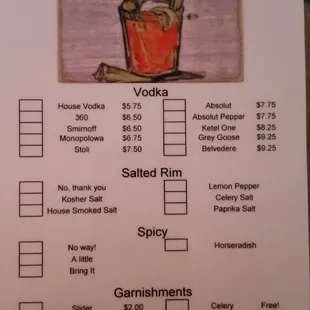 Vodka
House Vodka $5.75 Absolut $7.75
360 $6.50 Absolut Peppar $7.75
Smirnoff $6.50 Ketel One $8.25
Monopolowa $6.75 Grey Goose $9.25
Stoli $7.50 Belvedere $9.25
Salted Rim
No, thank you Lemon Pepper
Kosher Salt Celery Salt
House Smoked Salt Paprika Salt
Spicy
No way! Horseradish
A little
Bring It
Garnishments
Slider $2.00 Celery Free!